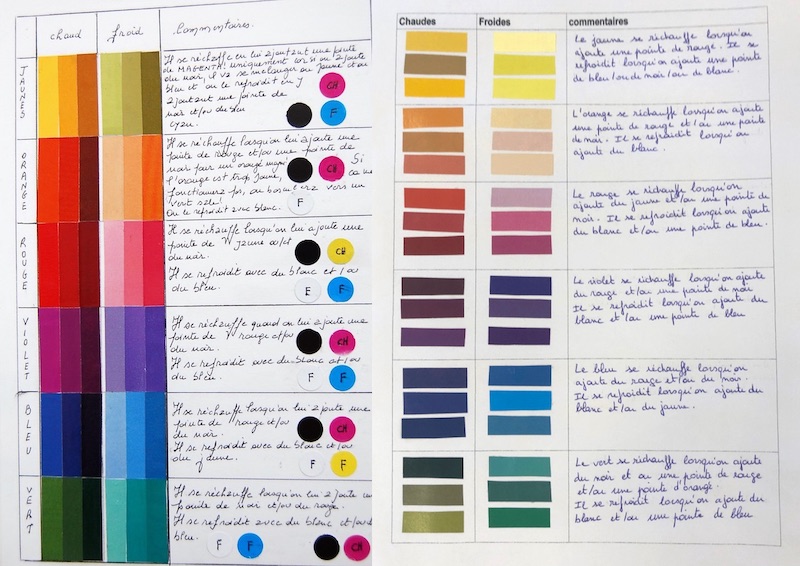 chaud froid Commentaires.
JAUNES
Il se réchauffe en lui ajoutant une pointe
de MAGENTA! uniquement car si on ajoute
du noir, il va se mélanger au jaune et au
bleu et on le refroidit en y
ajoutant une pointe de
noir et/ou de bleu
cyan.
CH
F
ORANGE
Il se réchauffe lorsqu'on lui ajoute une
pointe de rouge et/ou une pointe de
noir pour un orangé
l'orange est trop jaune, Si
ça ne
fonctionnera pas, on basculerez vers un
vert sale!
On le refroidit avec blanc.
CH
F
ROUGE
Il se réchauffe lorsqu'on lui ajoute une
pointe de jaune et/ou
du noir.
Il se refroidit avec du blanc et/ou
du bleu.
CH
F F
VIOLET
Il se réchauffe quand on lui ajoute une
pointe de rouge et/ou
du noir.
Il se refroidit avec du blanc et/ou
du bleu.
CH
F F
BLEU
Il se réchauffe lorsqu'on lui ajoute une
pointe de rouge et/ou
du noir.
Il se refroidit avec du blanc et/ou
du jaune.
CH
F F
VERT
Il se réchauffe lorsqu'on lui ajoute une
pointe de noir et/ou du rouge.
Il se refroidit avec du blanc et/ou du
bleu.
F F CH
Chaudes Froides commentaires
Le jaune se réchauffe lorsqu'on
ajoute une pointe de rouge. Il se
refroidit lorsqu'on ajoute une pointe
de bleu/ou de noir/ou du blanc.
L'orange se réchauffe lorsqu'on ajoute
une pointe de rouge et/ou une pointe
de noir. Il se refroidit lorsqu'on
ajoute du blanc.
Le rouge se réchauffe lorsqu'on
ajoute du jaune et/ou une pointe de
noir. Il se refroidit lorsqu'on ajoute
du blanc et/ou une pointe de bleu.
Le violet se réchauffe lorsqu'on ajoute
du rouge et/ou une pointe de noir
Il se refroidit lorsqu'on ajoute du
blanc et/ou une pointe de bleu
Le bleu se réchauffe lorsqu'on
ajoute du rouge et/ou du noir.
Il se refroidit lorsqu'on ajoute du
blanc et/ou du jaune.
Le vert se réchauffe lorsqu'on ajoute
du noir et ou une pointe de rouge
et/ou une pointe d'orange.
Il se refroidit lorsqu'on ajoute du
blanc et/ou une pointe de bleu